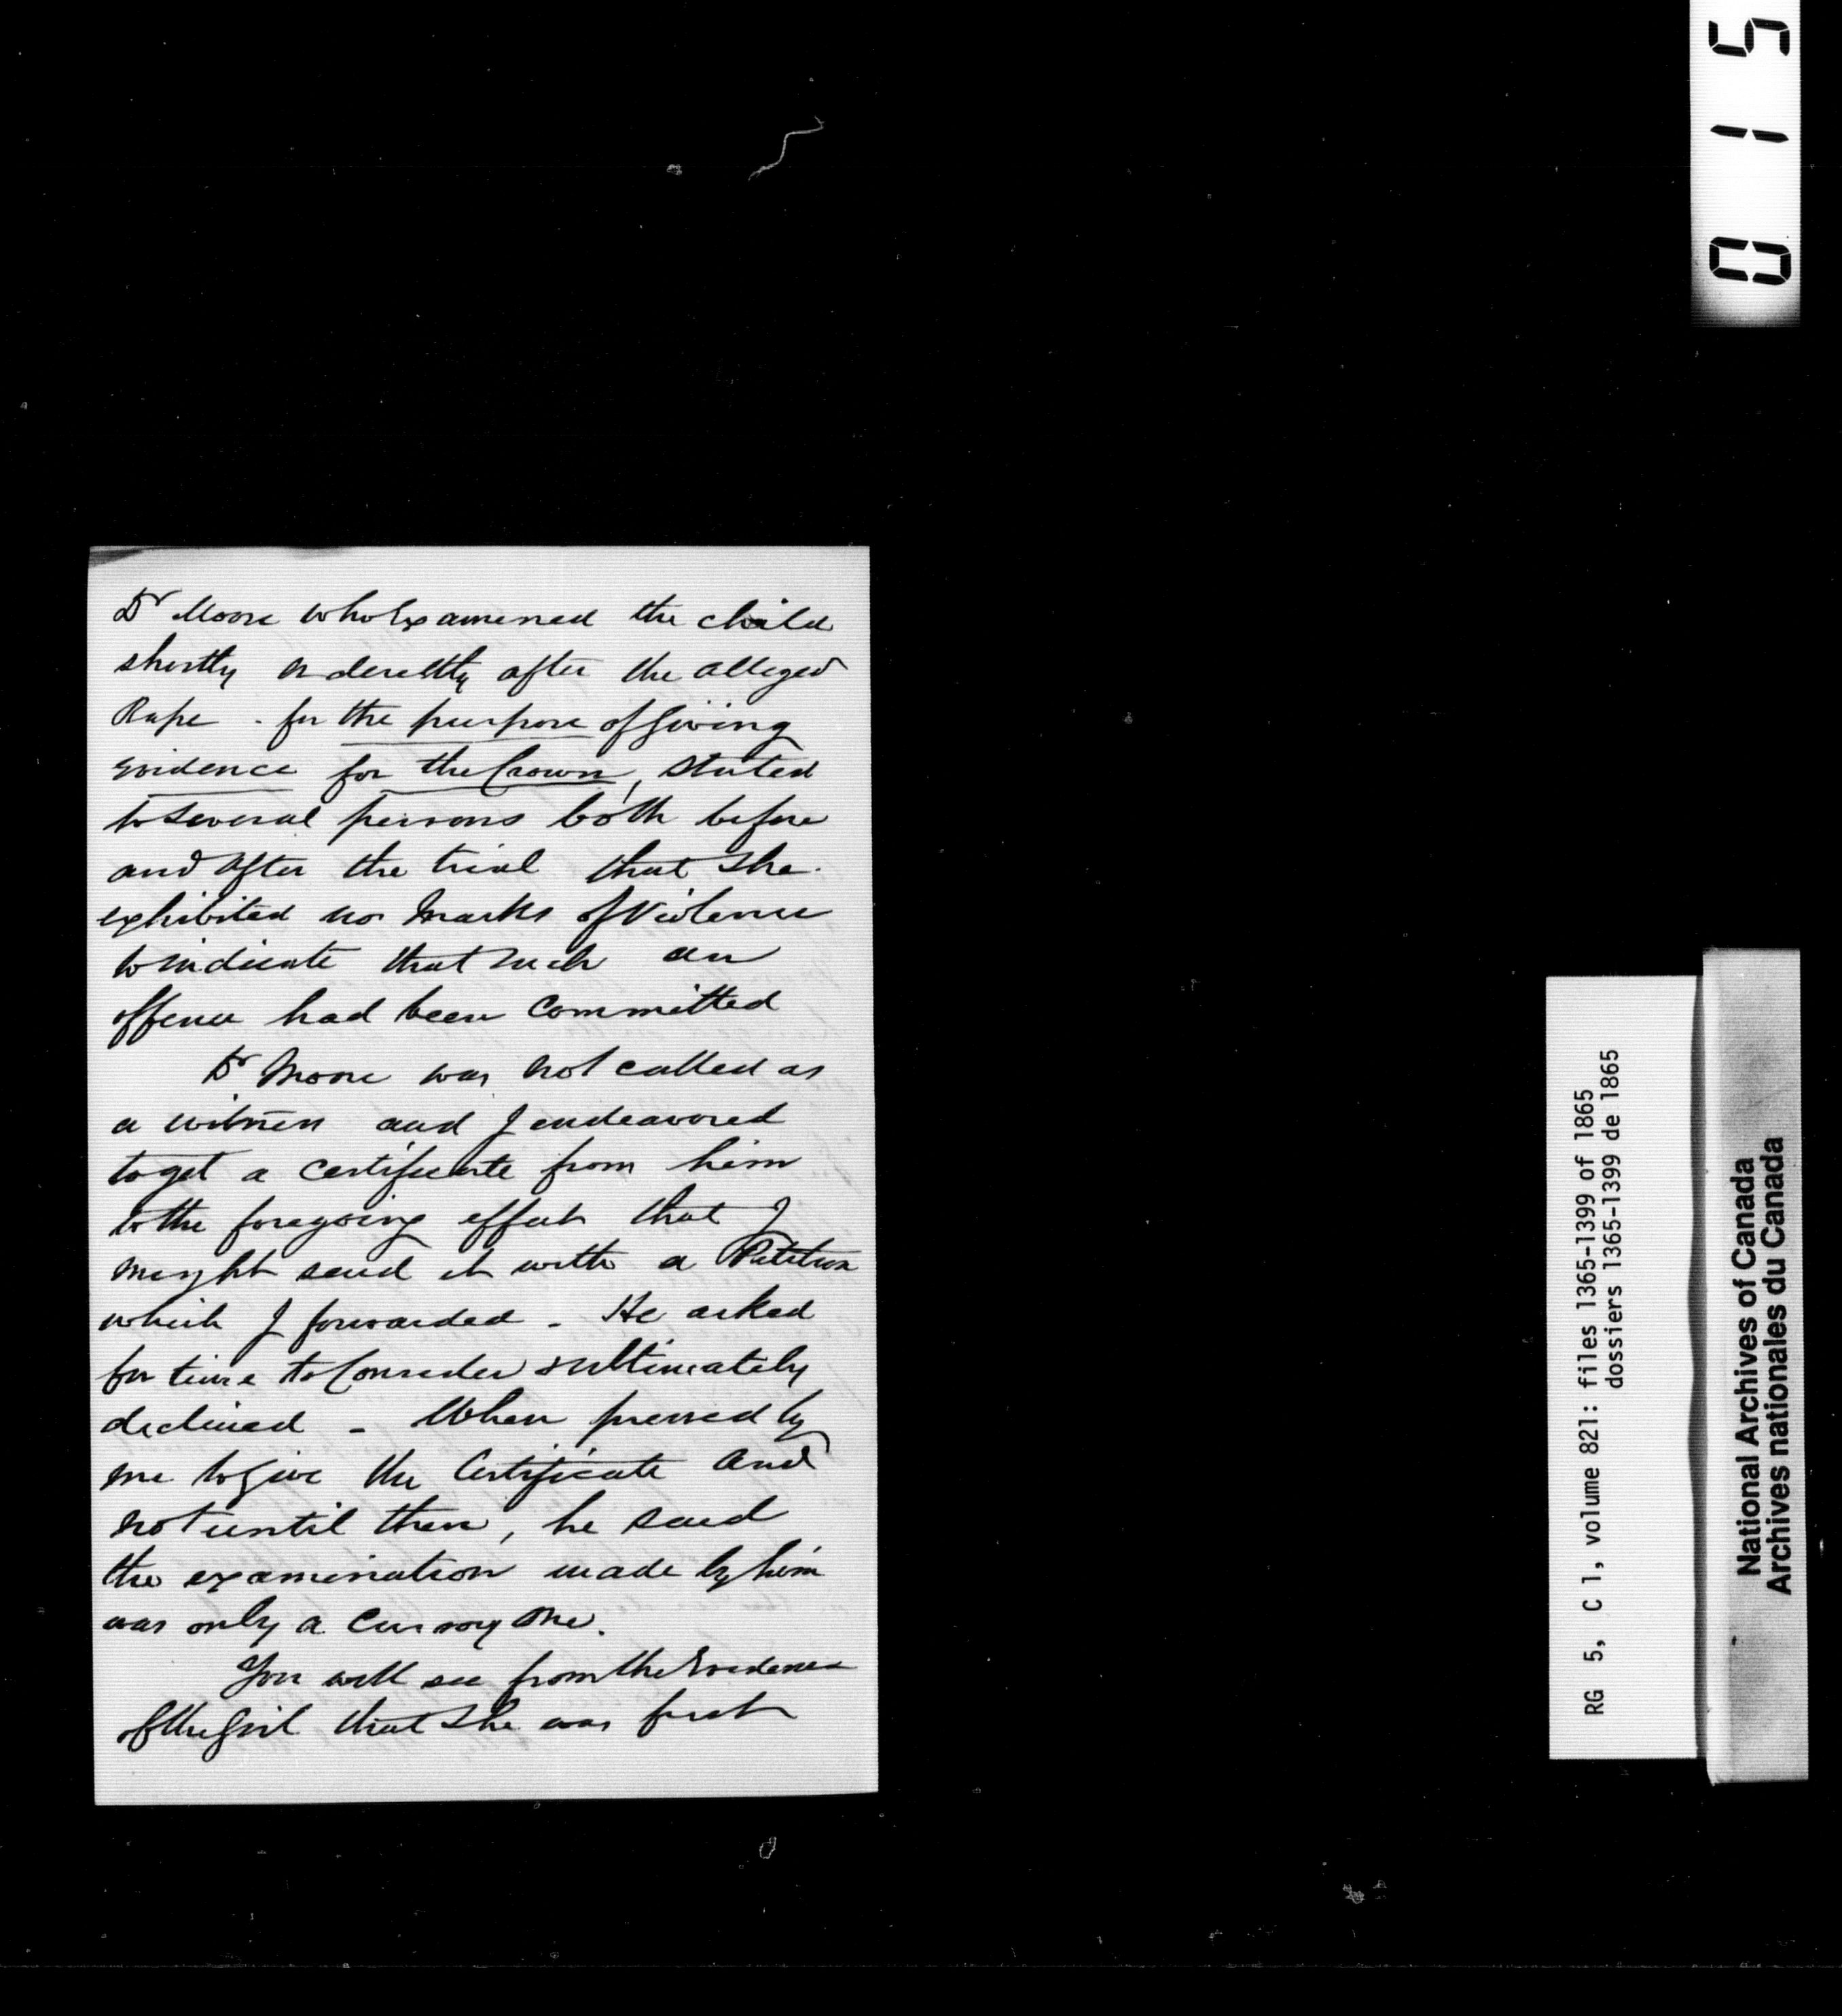 Dr Moore who Examened the child
shortly or derectly after the alleged
Rape - for the purpose of Giving
Evidence for the Crown, stated
to several persons both before
and after the trial that she
exhibited no marks of Violence
to indicate that such an
offence had been Committed
Dr Moore was not called as
a witness and I endeavored
to get a Certificate from him
to the foregoing effect that I
might send it with a Petition
which I forwarded - He asked
for time to Consider & ultimately
declined - When pressed by
me to give the Certificate and
not until then, he said
the examination made by him
was only a Cursory one.
You will see from the Evidence
of the Girl that she was first
0 1 5
RG 5, C 1, volume 821: files 1365-1399 of 1865
dossiers 1365-1399 de 1865
National Archives of Canada
Archives nationales du Canada